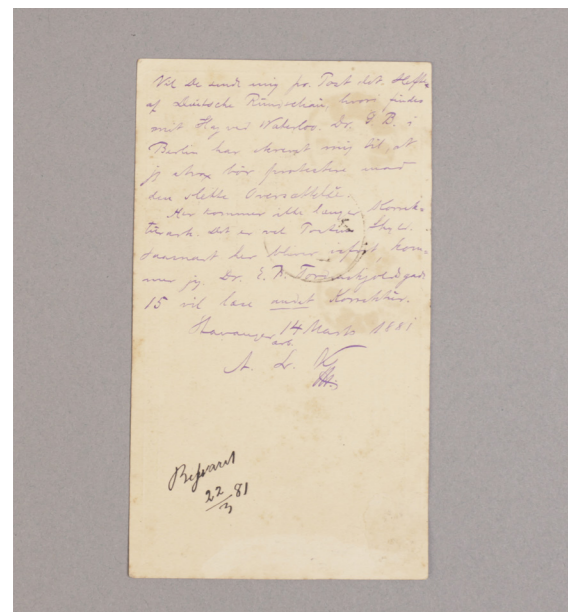 Vil De sende mig pr. Post det Hefte
af Deutsche Rundschau, hvori findes
mit Slag ved Waterloo. Dr. G. B. i
Berlin har skrevet mig til, at
jeg strax bør protestere mod
den slette Oversættelse.
Her kommer ikke længer Korrek-
turark. Det er vel Postens Skyld.
Saasnart her bliver isfrit kom-
mer jeg. Dr. E. B.
15 vil læse mindst Korrektur.
Stavanger 14 Marts 1881
A. L. K
Besvaret
22/3 81